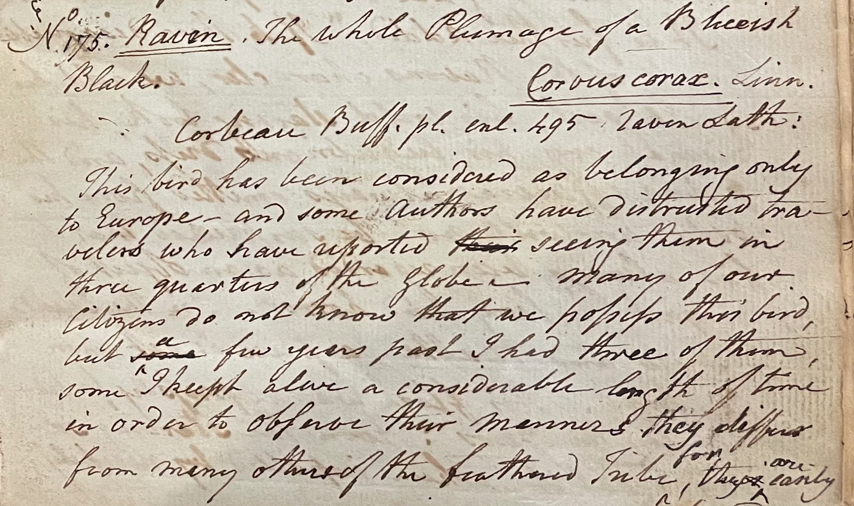 No. 175. Ravin. The whole Plumage of a Blueish
Black. Corvus corax. Linn.
Corbeau Buff. pl. enl. 495 Raven Lath:
This bird has been considered as belonging only
to Europe — and some Authors have distrusted tra-
velers who have reported their seeing them in
three quarters of the Globe — many of our
Citizens do not know that we possess this bird,
but some a few years past I had three of them,
some I keept alive a considerable length of time
in order to observe their manners they differ
from many others of the feathered Tribe, for they are easily